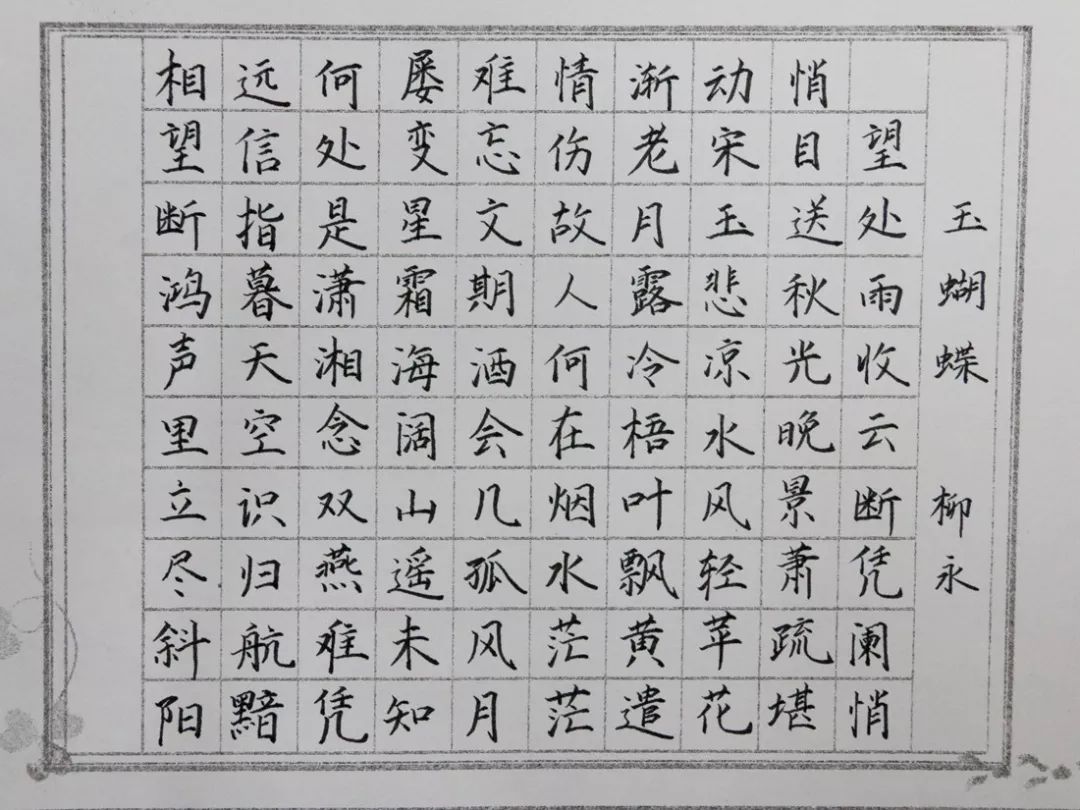 玉蝴蝶 柳永
望处雨收云断凭阑悄
悄目送秋光晚景萧疏堪
动宋玉悲凉水风轻苹花
渐老月露冷梧叶飘黄遣
情伤故人何在烟水茫茫
难忘文期酒会几孤风月
屡变星霜海阔山遥未知
何处是潇湘念双燕难凭
远信指暮天空识归航黯
相望断鸿声里立尽斜阳